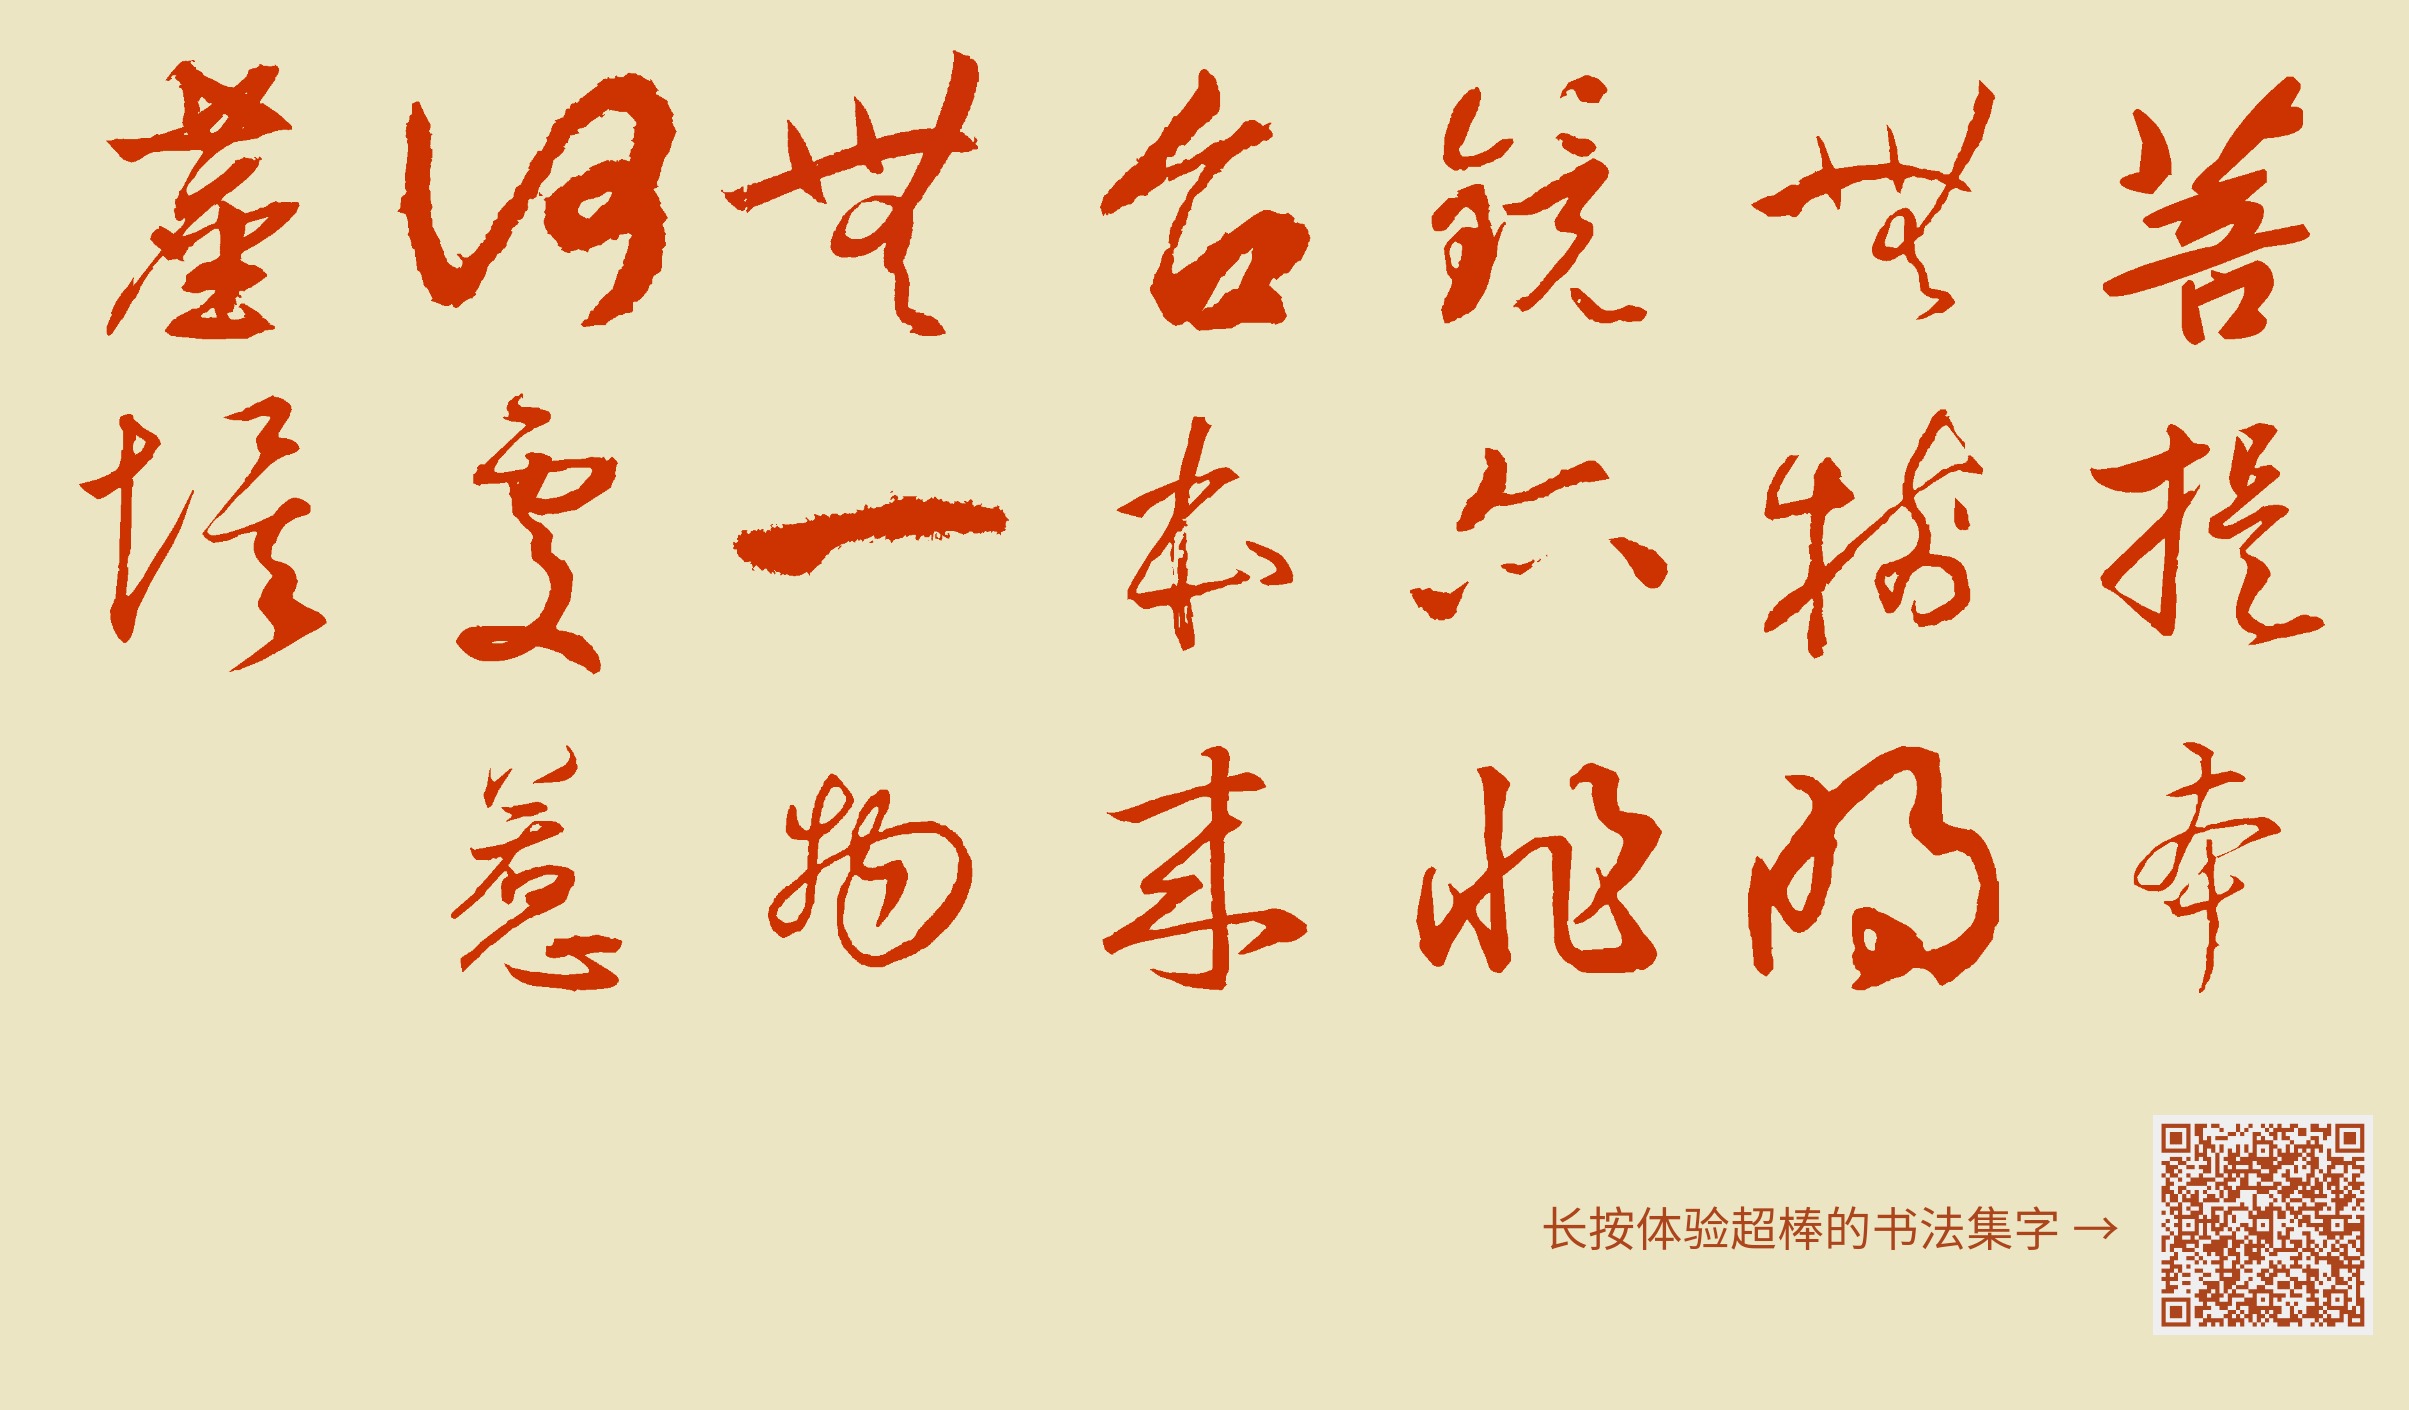 菩提本
無樹明
鏡亦非
台本来
無一物
何處惹
塵埃
长按体验超棒的书法集字 →